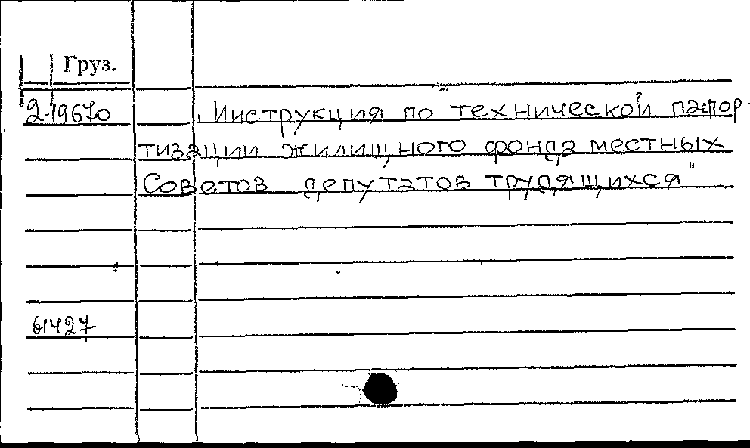 Груз.
2-19670 „Инструкция по технической паспор-
тизации жилищного фонда местных
Советов депутатов трудящихся"
61427